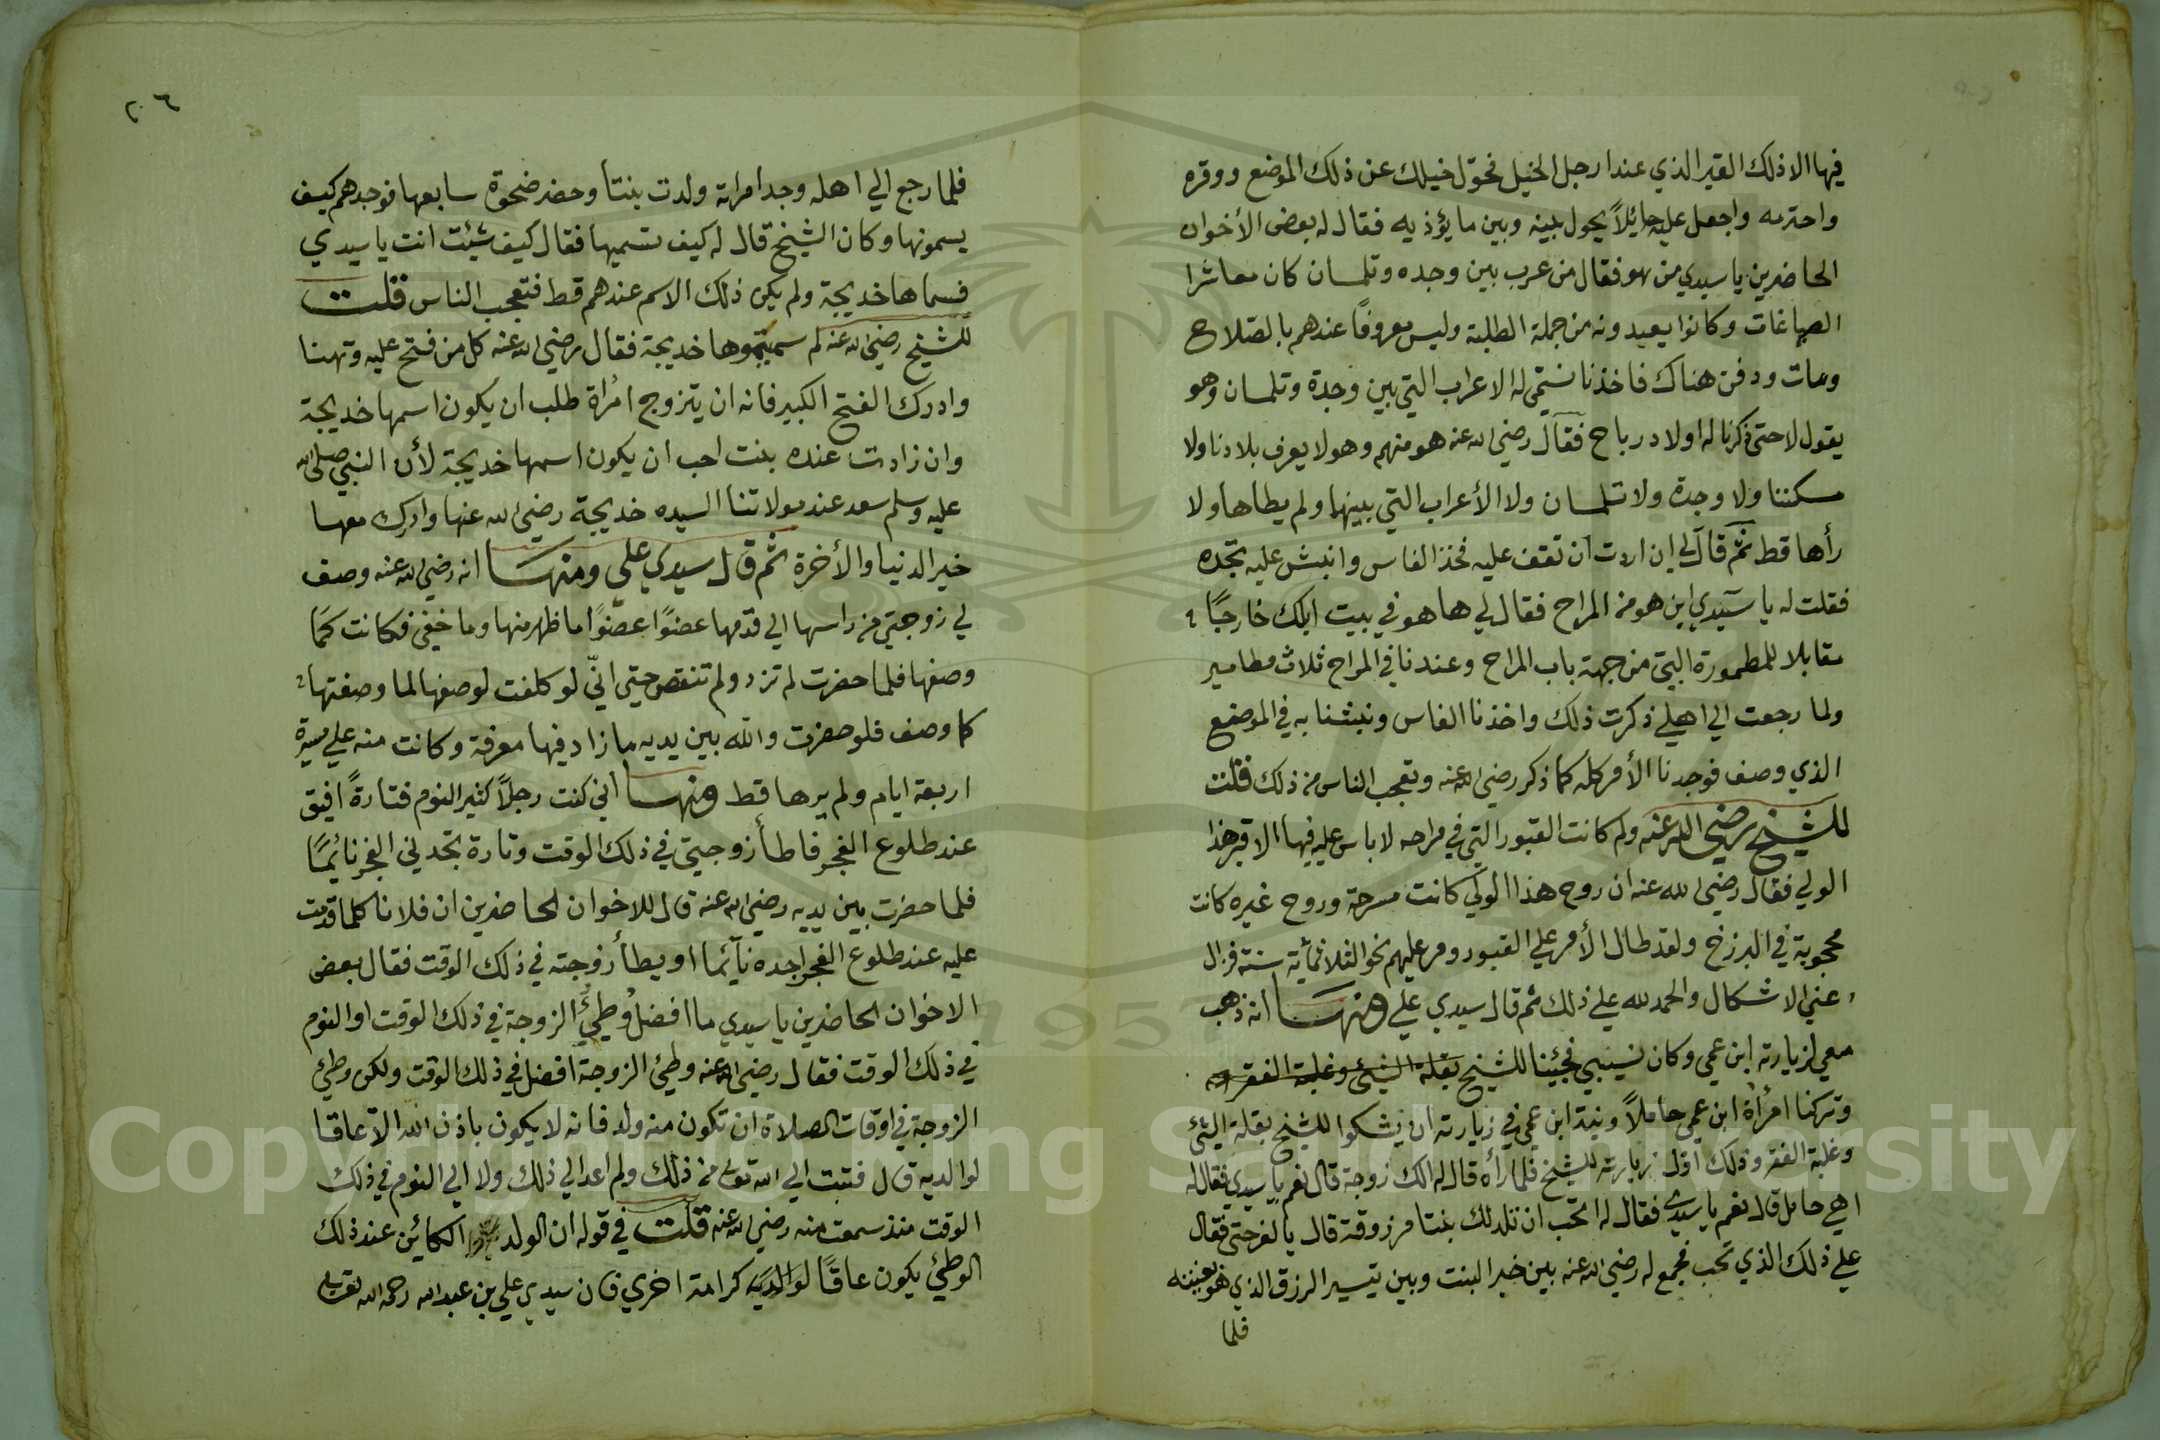 فيها الا ذلك القبر الذي عند ارجل الخيل فحوّل خيلك عن ذلك الموضع ووقره
واحترمه واجعل عليه حائلاً يحول بينه وبين ما يؤذيه فقال له بعض الأخوان
الحاضرين يا سيدي من هو فقال من عرب بين وجده وتلمسان كان معاشرا
وكانوا يعيدونه من جملة الطلبة وليس معروفًا عندهم بالصّلاح
ومات ودفن هناك فاخذنا نسمّي له الاعراب التي بين وجدة وتلمسان وهو
يقول لا حتى ذكرنا له اولاد رباح فقال رضي الله عنه هو منهم وهو لا يعرف بلادنا ولا
مسكننا ولا وجدة ولا تلمسان ولا الأعراب التي بينهما ولم يطأها ولا
رأها قط ثمّ قال لي ان اردت ان تقف عليه فخذ الفاس وانبش عليه تجده
فقلت له يا سيّدي اين هو من المراح فقال لي ها هو في بيت ابيك خارجًا
مقابلا للمطمورة التي من جهة باب المراح وعندنا في المراح ثلاث مطامير
ولما رجعت الي اهلي ذكرت ذلك واخذنا الفاس ونبشنا به في الموضع
الذي وصف فوجدنا الأمر كله كما ذكر رضي الله عنه وتعجب الناس من ذلك قلت
للشيخ رضي الله عنه ولم كانت القبور التي في مراحه لا باس عليه فيها الا قبر هذا
الولي فقال رضي الله عنه ان روح هذا الولّي كانت مسرحة وروح غيره كانت
محجوبة في البرزخ ولقد طال الأمر علي القبور ومر عليهم نحو الثلاثمائة سنة فزال
عني الاشكال والحمد لله علي ذلك ثم قال سيدي علي ومنها انه ذهب
معي لزيارته ابن عمي وكان نسيبي فجئنا للشيخ بقلة الشئ وغلبة الفقر
وتركنا امرأة ابن عمي حاملاً ونية ابن عمي في زيارته ان يشكوا للشيخ بقلة الشئ
وغلبة الفقر وذلك اوّل زيارته للشيخ فلما رأه قال له الك زوجة قال نعم يا سيدي فقال له
اهي حامل قال نعم يا سيدي فقال له اتحب ان تلد لك بنتا مرزوقة قال يا لفرحتي فقال
علي ذلك الذي تحب فجمع له رضي الله عنه بين خبر البنت وبين تيسير الرزق الذي هو بغيته
فلما
٢٠٦
فلما رجع الي اهله وجد امراته ولدت بنتا وحضر ضحوة سابعها فوجدهم كيف
يسمونها وكان الشيخ قال له كيف تسميها فقال كيف شئت انت يا سيدي
فسماها خديجة ولم يكن ذلك الاسم عندهم قط فتعجب الناس قلت
للشيخ رضي الله عنه لم سميتموها خديجة فقال رضي الله عنه كل من فتح عليه وتهنا
وادرك الفتح الكبير فانه ان يتزوج امرأة طلب ان يكون اسمها خديجة
وان زادت عنده بنت احب ان يكون اسمها خديجة لأن النبي صلى الله
عليه وسلم سعد عند مولاتنا السيده خديجة رضي الله عنها وادرك معها
خير الدنيا والأخرة ثم قال سيدي علي ومنها انه رضي الله عنه وصف
لي زوجتي من راسها الي قدمها عضوًا عضوًا ما ظهر منها وما خفي فكانت كمَا
وصفها فلما حضرت لم تزد ولم تنقص حتي انّي لو كلفت لوصفها لما وصفتها
كما وصف فلو حضرت والله بين يديه ما زاد فيها معرفة وكانت منه علي مسيرة
اربعة ايام ولم يرها قط ومنها اني كنت رجلاً كثير النوم فتارةً افيق
عند طلوع الفجر فاطأ زوجتي في ذلك الوقت وتارة تجدني الفجر نائمًا
فلما حضرت بين يديه رضي الله عنه قال للاخوان الحاضرين ان فلانا كلما قدمت
عليه عند طلوع الفجر اجده نآئما او يطأ زوجته في ذلك الوقت فقال بعض
الاخوان الحاضرين يا سيدي ما افضل وطئ الزوجة في ذلك الوقت او النوم
في ذلك الوقت فقال رضي الله عنه وطئ الزوجة افضل في ذلك الوقت ولكن وطئ
الزوجة في اوقات الصلاة ان تكون منه ولد فانه لا يكون باذن الله الاّ عاقا
لوالديه قال فتبت الي الله تعالى من ذلك ولم اعد الي ذلك ولا الي النوم في ذلك
الوقت منذ سمعت منه رضي الله عنه قلت في قوله ان الولد الكائن عند ذلك
الوطئ يكون عاقًا لوالديه كرامة اخري فان سيدي علي بن عبد الله رحمه الله تعالى
Copyright © King Saud University
195